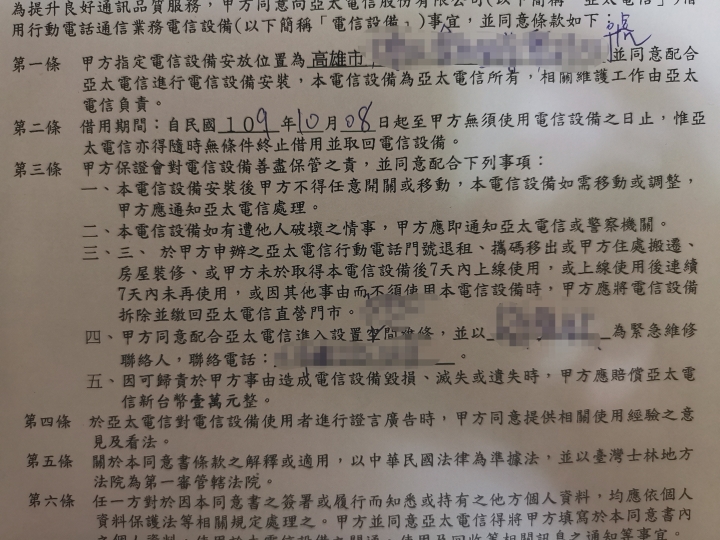 為提升良好通訊品質服務,甲方同意向亞太電信股份有限公司(以下簡稱「亞太電信」)借
用行動電話通信業務電信設備(以下簡稱「電信設備」)事宜,並同意條款如下:
號
第一條 甲方指定電信設備安放位置為 高雄市 並同意配合
亞太電信進行電信設備安裝,本電信設備為亞太電信所有,相關維護工作由亞太
電信負責。
第二條 借用期間:自民國 109 年 10 月 08 日起至甲方無須使用電信設備之日止,惟亞
太電信亦得隨時無條件終止借用並取回電信設備。
第三條 甲方保證會對電信設備善盡保管之責,並同意配合下列事項:
一、本電信設備安裝後甲方不得任意開關或移動,本電信設備如需移動或調整,
甲方應通知亞太電信處理。
二、本電信設備如有遭他人破壞之情事,甲方應即通知亞太電信或警察機關。
三、三、於甲方申辦之亞太電信行動電話門號退租、攜碼移出或甲方住處搬遷、
房屋裝修、或甲方未於取得本電信設備後7天內上線使用,或上線使用後連續
7天內未再使用,或因其他事由而不須使用本電信設備時,甲方應將電信設備
拆除並繳回亞太電信直營門市。
四、甲方同意配合亞太電信進入設置空間維修,並以 為緊急維修
聯絡人,聯絡電話: 。
五、因可歸責於甲方事由造成電信設備毀損、滅失或遺失時,甲方應賠償亞太電
信新台幣壹萬元整。
第四條 於亞太電信對電信設備使用者進行證言廣告時,甲方同意提供相關使用經驗之意
見及看法。
第五條 關於本同意書條款之解釋或適用,以中華民國法律為準據法,並以臺灣士林地方
法院為第一審管轄法院。
第六條 任一方對於因本同意書之簽署或履行而知悉或持有之他方個人資料,均應依個人
資料保護法等相關規定處理之。甲方並同意亞太電信得將甲方填寫於本同意書內
之個人資料,使用於本電信設備之開通、使用及回收等相關訊息之通知等事宜。